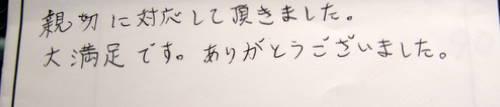 親切に対応して頂きました。
大満足です。ありがとうございました。